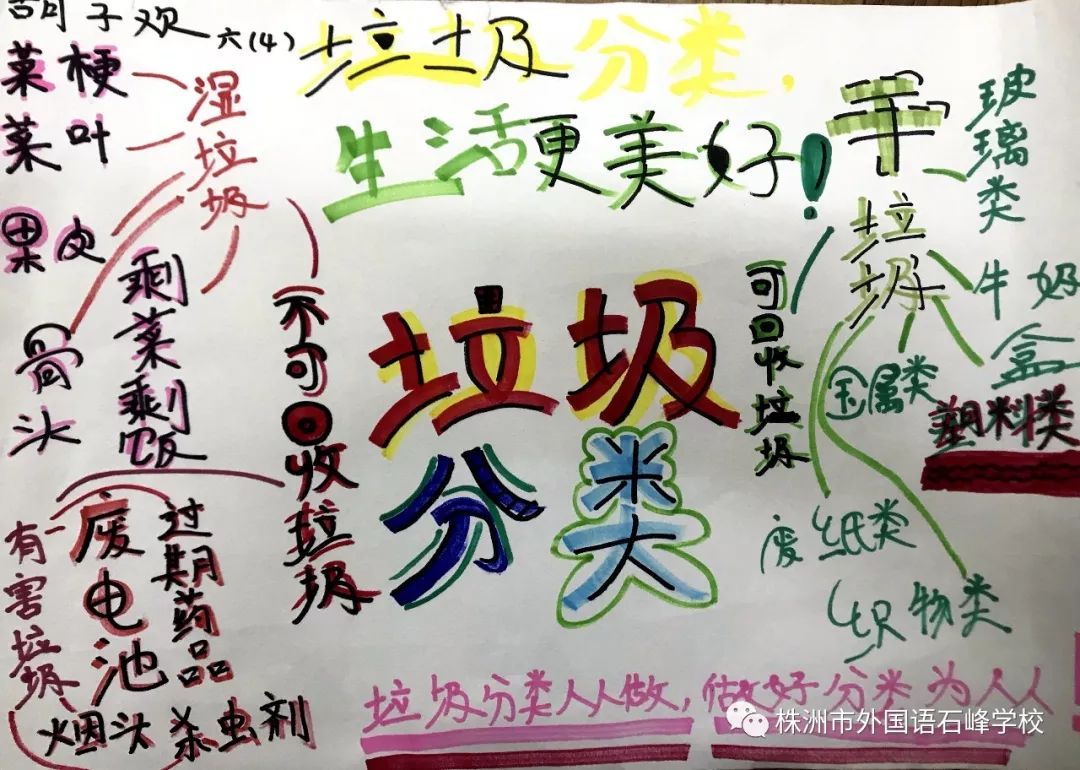 胡子欢 六(4)
垃圾分类，
生活更美好！
湿垃圾
菜梗
菜叶
果皮
骨头
剩菜剩饭
不可回收垃圾
有害垃圾
废电池
过期药品
烟头 杀虫剂
垃圾
分类
可回收垃圾
干垃圾
玻璃类
牛奶盒
金属类
塑料类
废纸类
织物类
垃圾分类人人做，做好分类为人人！
株洲市外国语石峰学校